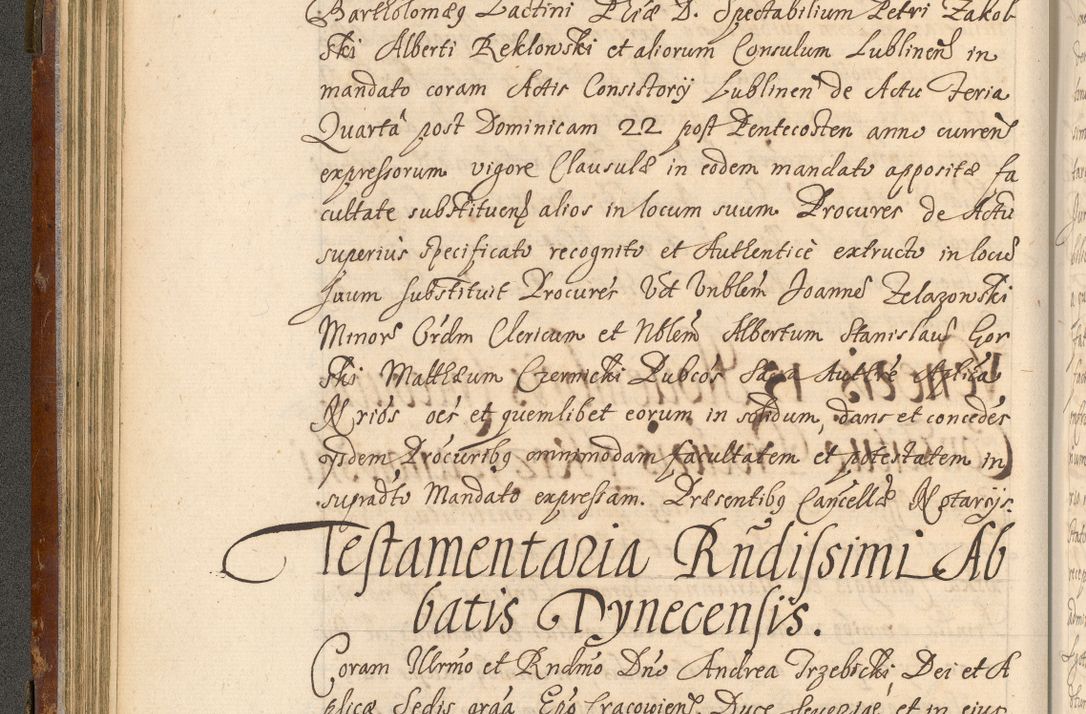 Bartholomæg Lactini Pliæ D. Spectabilium Petri Zakol
ski Alberti Reklowski et aliorum Consulum Lublinen in
mandato coram Actis Consistorij Lublinen de Actu Feria
Quarta post Dominicam 22 post Pentecosten anno curren
expressorum vigore Clausulæ in eodem mandato appositæ fa
cultate substituen alios in locum suum Procures de Actu
superius specificato recognito et Authenticè extructo in locu
suum substituit Procures Vct Unblem Joannes Zelazowski
Minor Ordm Clericum et Nblem Albertum Stanislaus Gor
ski Mattheum Czernicki Pubcos Sacra Authre Aplica
Nrios oes et quemlibet eorum in solidum, dans et concedes
ijsdem Procuribg omnimodam facultatem et potestatem in
supradto Mandato expressam. Præsentibg Cancellæ Notarijs.
Testamentaria Rndissimi Ab
batis Tynecensis.
Coram Illrmo et Rndmo Dno Andrea Trzebicki, Dei et A
plicæ Sedis graa Epo Cracovien Duce Severiæ et in eius